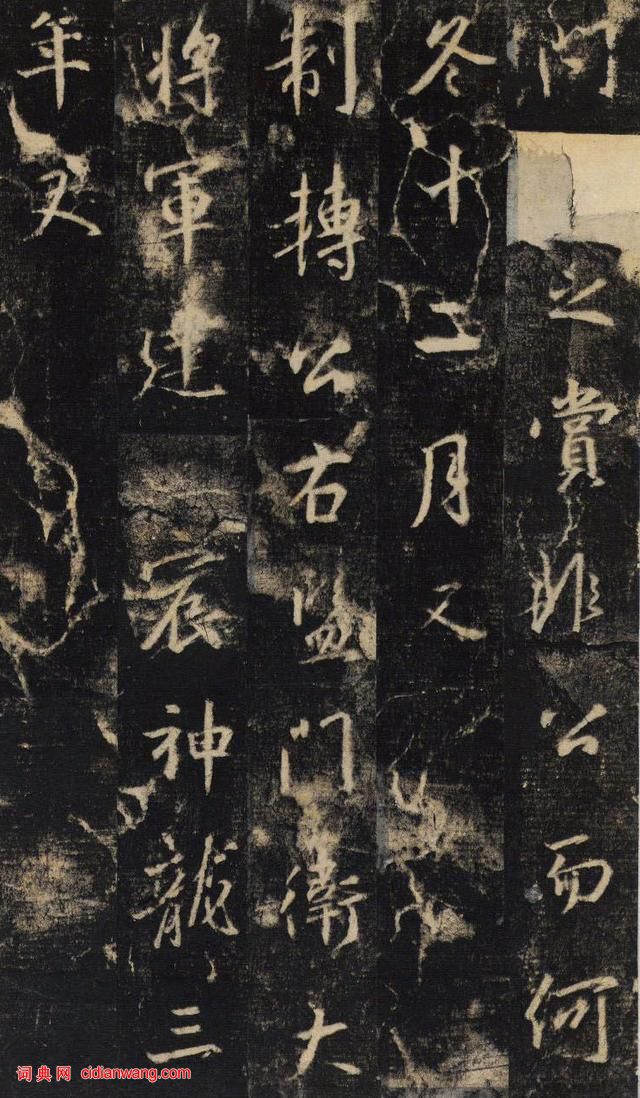 問之賞非公而何
冬十二月又
制轉公右監門衛大
將軍建宸神龍三
年又
词典网 cidianwang.com